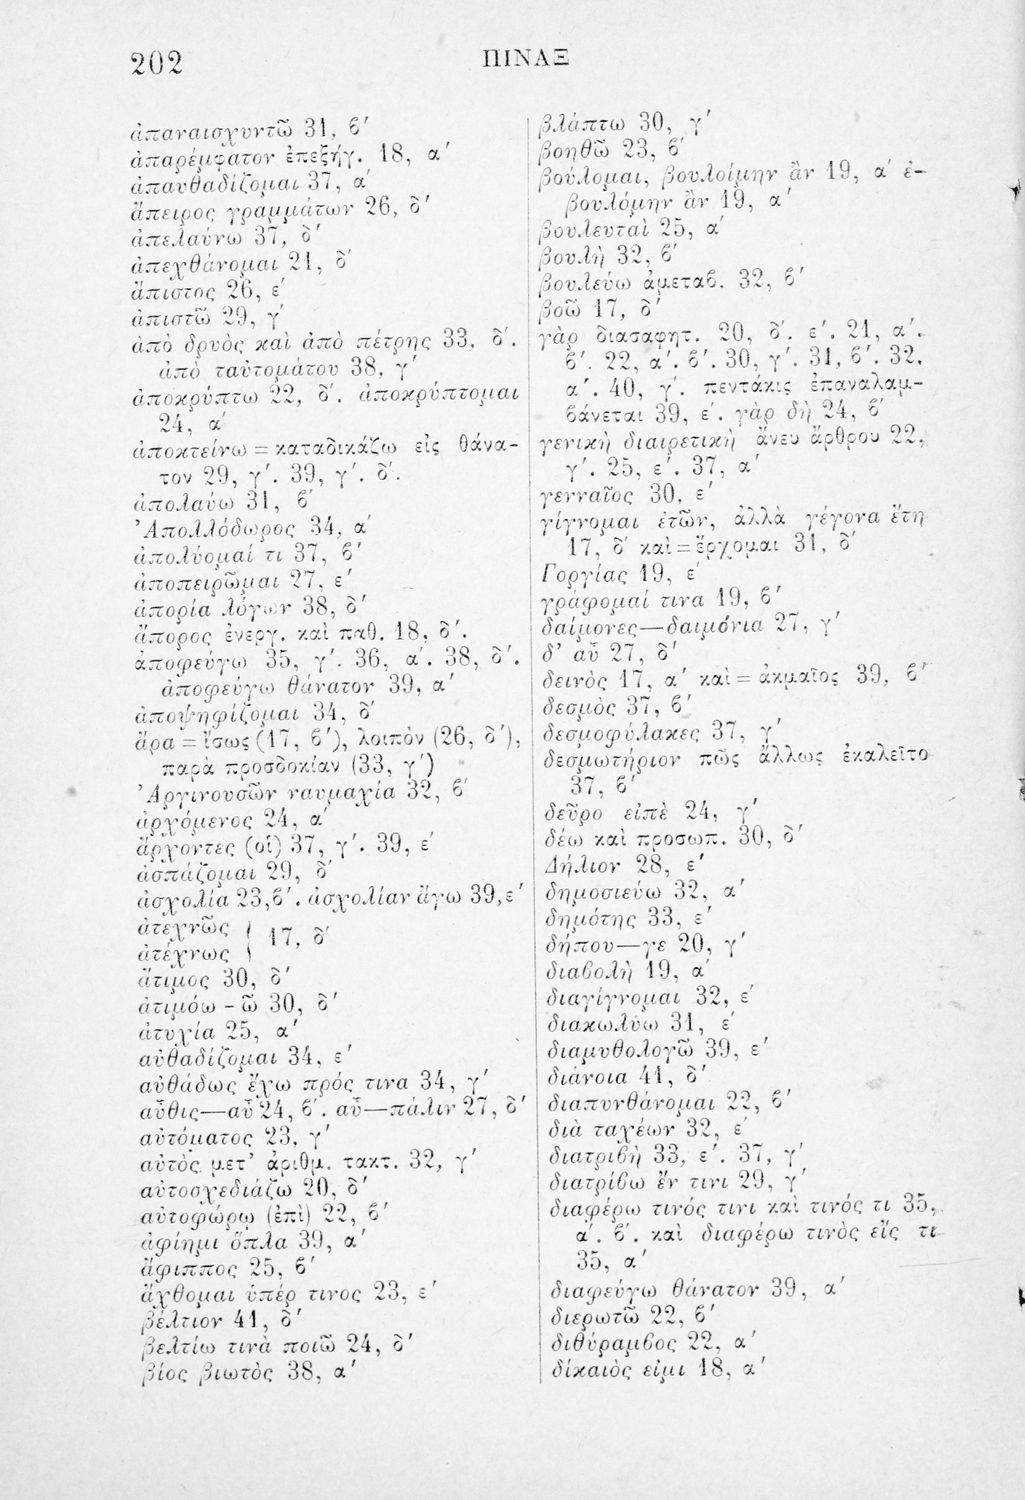 202
ΠΙΝΑΞ
ἀπαναισχυντῶ 31, β΄
ἀπαρέμφατον ἐπεξήγ. 18, α΄
ἀπαυθαδίζομαι 37, α΄
ἄπειρος γραμμάτων 26, δ΄
ἀπελαύνω 37, δ΄
ἀπεχθάνομαι 21, δ΄
ἄπιστος 26, ε΄
ἀπιστῶ 29, γ΄
ἀπὸ δρυὸς καὶ ἀπὸ πέτρης 33, δ΄.
ἀπὸ ταὐτομάτου 38, γ΄
ἀποκρύπτω 22, δ΄. ἀποκρύπτομαι
24, α΄
ἀποκτείνω = καταδικάζω εἰς θάνα-
τον 29, γ΄. 39, γ΄. δ΄.
ἀπολαύω 31, β΄
Ἀπολλόδωρος 34, α΄
ἀπολύομαί τι 37, β΄
ἀποπειρῶμαι 27, ε΄
ἀπορία λόγων 38, δ΄
ἄπορος ἐνεργ. καὶ παθ. 18, δ΄.
ἀποφεύγω 35, γ΄. 36, α΄. 38, δ΄.
ἀποφεύγω θάνατον 39, α΄
ἀποψηφίζομαι 34, δ΄
ἄρα = ἴσως (17, β΄), λοιπὸν (26, δ΄),
παρὰ προσδοκίαν (33, γ΄)
Ἀργινουσῶν ναυμαχία 32, β΄
ἀρχόμενος 24, α΄
ἄρχοντες (οἱ) 37, γ΄. 39, ε΄
ἀσπάζομαι 29, δ΄
ἀσχολία 23, β΄. ἀσχολίαν ἄγω 39, ε΄
ἀτεχνῶς
ἀτέχνως } 17, δ΄
ἄτιμος 30, δ΄
ἀτιμόω - ῶ 30, δ΄
ἀτυχία 25, α΄
αὐθαδίζομαι 34, ε΄
αὐθάδως ἔχω πρός τινα 34, γ΄
αὖθις—αὖ 24, β΄. αὖ—πάλιν 27, δ΄
αὐτόματος 23, γ΄
αὐτὸς μετ' ἀριθμ. τακτ. 32, γ΄
αὐτοσχεδιάζω 20, δ΄
αὐτοφώρῳ (ἐπὶ) 22, β΄
ἀφίημι ὅπλα 39, α΄
ἄφιππος 25, β΄
ἄχθομαι ὑπέρ τινος 23, ε΄
βέλτιον 41, δ΄
βελτίω τινὰ ποιῶ 24, δ΄
βίος βιωτὸς 38, α΄
βλάπτω 30, γ΄
βοηθῶ 23, β΄
βούλομαι, βουλοίμην ἂν 19, α΄ ἐ-
βουλόμην ἂν 19, α΄
βουλευταὶ 25, α΄
βουλὴ 32, β΄
βουλεύω ἀμεταβ. 32, β΄
βοῶ 17, δ΄
γὰρ διασαφητ. 20, δ΄. ε΄. 21, α΄.
β΄. 22, α΄. β΄. 30, γ΄. 31, β΄. 32,
α΄. 40, γ΄. πεντάκις ἐπαναλαμ-
βάνεται 39, ε΄. γὰρ δὴ 24, β΄
γενικὴ διαιρετικὴ ἄνευ ἄρθρου 22,
γ΄. 25, ε΄. 37, α΄
γενναῖος 30, ε΄
γίγνομαι ἐτῶν, ἀλλὰ γέγονα ἔτη
17, δ΄ καὶ = ἔρχομαι 31, δ΄
Γοργίας 19, ε΄
γράφομαί τινα 19, β΄
δαίμονες—δαιμόνια 27, γ΄
δ' αὖ 27, δ΄
δεινὸς 17, α΄ καὶ = ἀκμαῖος 39, β΄
δεσμὸς 37, β΄
δεσμοφύλακες 37, γ΄
δεσμωτήριον πῶς ἄλλως ἐκαλεῖτο
37, β΄
δεῦρο εἰπὲ 24, γ΄
δέω καὶ προσωπ. 30, δ΄
Δήλιον 28, ε΄
δημοσιεύω 32, α΄
δημότης 33, ε΄
δήπου—γε 20, γ΄
διαβολὴ 19, α΄
διαγίγνομαι 32, ε΄
διακωλύω 31, ε΄
διαμυθολογῶ 39, ε΄
διάνοια 41, δ΄
διαπυνθάνομαι 22, β΄
διὰ ταχέων 32, ε΄
διατριβὴ 33, ε΄. 37, γ΄
διατρίβω ἔν τινι 29, γ΄
διαφέρω τινός τινι καὶ τινός τι 35,
α΄. β΄. καὶ διαφέρω τινὸς εἴς τι
35, α΄
διαφεύγω θάνατον 39, α΄
διερωτῶ 22, β΄
διθύραμβος 22, α΄
δίκαιός εἰμι 18, α΄